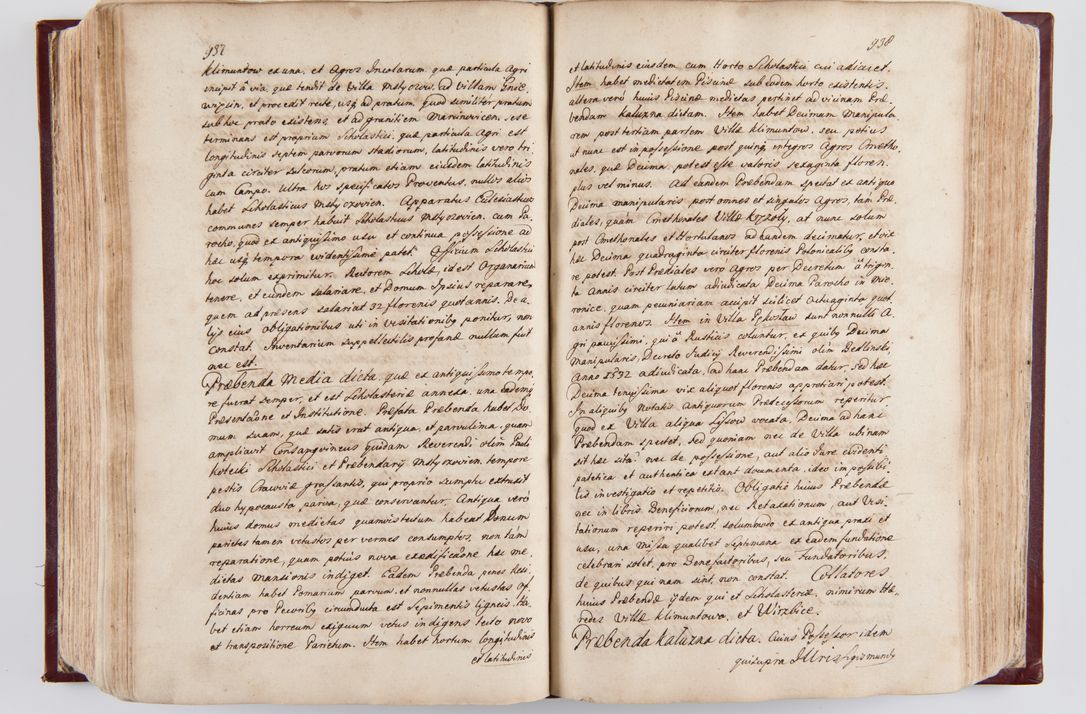 937
Klimuntow ex una, et Agros Incolarum quæ particula Agri
incipit â via, quæ tendit de Villa Msty ad Villam
et procedit recte, usq ad pratum, quod similiter pratum
sub hoc prato existens, et ad granitiem Marinovicen. sese
terminans est proprium Scholastici, quæ particula Agri est
longitudinis septem parvorum stadiorum, latitudinis vero tri
ginta circiter sulcorum, pratum etiam eiusdem latitudinis
cum Campo. Ultra hos specificatos Proventus, nullos alios
habet Scholasticus Mstyczovien. Apparatus Eclesiasticos
communes semper habuit Scholasticus Mstyczovien. cum Pa-
rocho, quod ex antiquissimo usu et continua possessione ad
hæc usq tempora evidentissime patet. Officium Scholastici
hoc solum exprimitur. Rectorem Scholæ, id est Organarium
tenere, et eundem salariare, et Domum Ipsius reparare,
quem ad præsens salariat 32 florenis quotannis. De a-
lijs eius obligationibus uti in visitationibq ponitur, non
Constat. Inventarium suppellectilis profanæ nullum fuit
nec est.
Præbenda Media dicta, quæ ex antiquissimo tempo-
re fuerat semper, et est Scholasteriæ annexa, una Eademq
Præsentaõne et Institutione. Præfata Præbenda habet Do-
mum suam, quæ satis erat antiqua, et parvulima, quam
ampliavit Consangvineus quidam Reverendi olim Pauli
Kotecki Scholastici et Præbendarij Mstyczovien. tempore
pestis Cracoviæ grassantis, qui proprio sumptu extruxit
duo hypocausta parva, quæ conservantur. Antiqua verò
huius domus medietas quamvis tutum habeat Donum
parietes tamen vetustos per vermes consumptos, non tàm
reparatione, quam potius nova exædificaõne hæc me-
dietas mansionis indiget. Eadem Præbenda penes Resi-
dentiam habet Pomarium parvum, et nonnullas vetustas Of-
ficinas pro Pecoribq circumducta est Sepimentis ligneis. Ha-
bet etiam horreum exiguum vetus indigens tecto novo
et transpositione Parietum. Item habet hortum longitudinis
et latitudinis
938
et latitudinis eiusdem cum Horto Scholastici cui adiacet.
Item habet medietatem Piscinæ sub eodem horto existentis,
altera verò huius Piscinæ medietas pertinet ad vicinam Præ-
bendam kaluzna dictam. Item habet Decimam Manipula-
rem post tertiam partem Villæ Klimuntow, seu potius
ut nunc est in possessione post quinq integros Agros Cmetho-
nales, quæ Decima, potest esse valoris sexaginta floren.
plus vel minus. Ad eandem Præbendam spectat ex antiquo
Decima manipularis post omnes et singulos Agros, tàm Præ-
diales, quàm Cmethonales Villæ Krzzoly, at nunc solum
post Cmethonales et Hortulanos ad eandem decimatur, et vix
hæc Decima quadraginta circiter florenis Polonicalibq consta-
re potest. Post Prædiales verò Agros per Decretum â trigin-
ta Annis circiter latum adiudicata Decima Parocho in Mie-
ronice, quam pecuniariam accipit scilicet octuaginta quot
annis florenos. Item in Villa Pękoslaw sunt nonnulli A-
gri paucissimi, qui â Rusticis coluntur, ex quibq Decima
manipularis, Decreto Iudicij Reverendissimi olim Bedlinski,
Anno 1592 adiudicata, ad hanc Præbendam datur, sed hæc
Decima tenuissima vix aliquot florenis appretiari potest.
In aliquibq Notatis antiquorum Prædecessorum reperitur
quod ex Villa aliqua Lyssow vocata, Decima ad hanc
Præbendam spectet, sed quoniam nec de Villa ubinam
sit hæc sita nec de possessione, aut alio Iure evidenti
patetica et authentica extant documenta, ideo impossibi-
lis investigatio et repetitio. Obligatio huius Præbendæ
nec in libris Beneficiorum, nec Retaxationum, aut Visi-
tationum reperiri potest, solummodo ex antiqua praxi et
usu, una Missa qualibet Septimana ex eadem fundatione
celebrari solet, pro Benefactoribus, seu Fundatoribus,
de quibus qui nam sint, non constat. Collatores
huius Præbendæ ijdem qui et Scholasteriæ, nimirum Hæ-
redes Villæ Klimuntowo, et Wirzbice.
Præbenda kaluzna dicta. Cuius Possessor idem
qui supra Illris Sigismundq